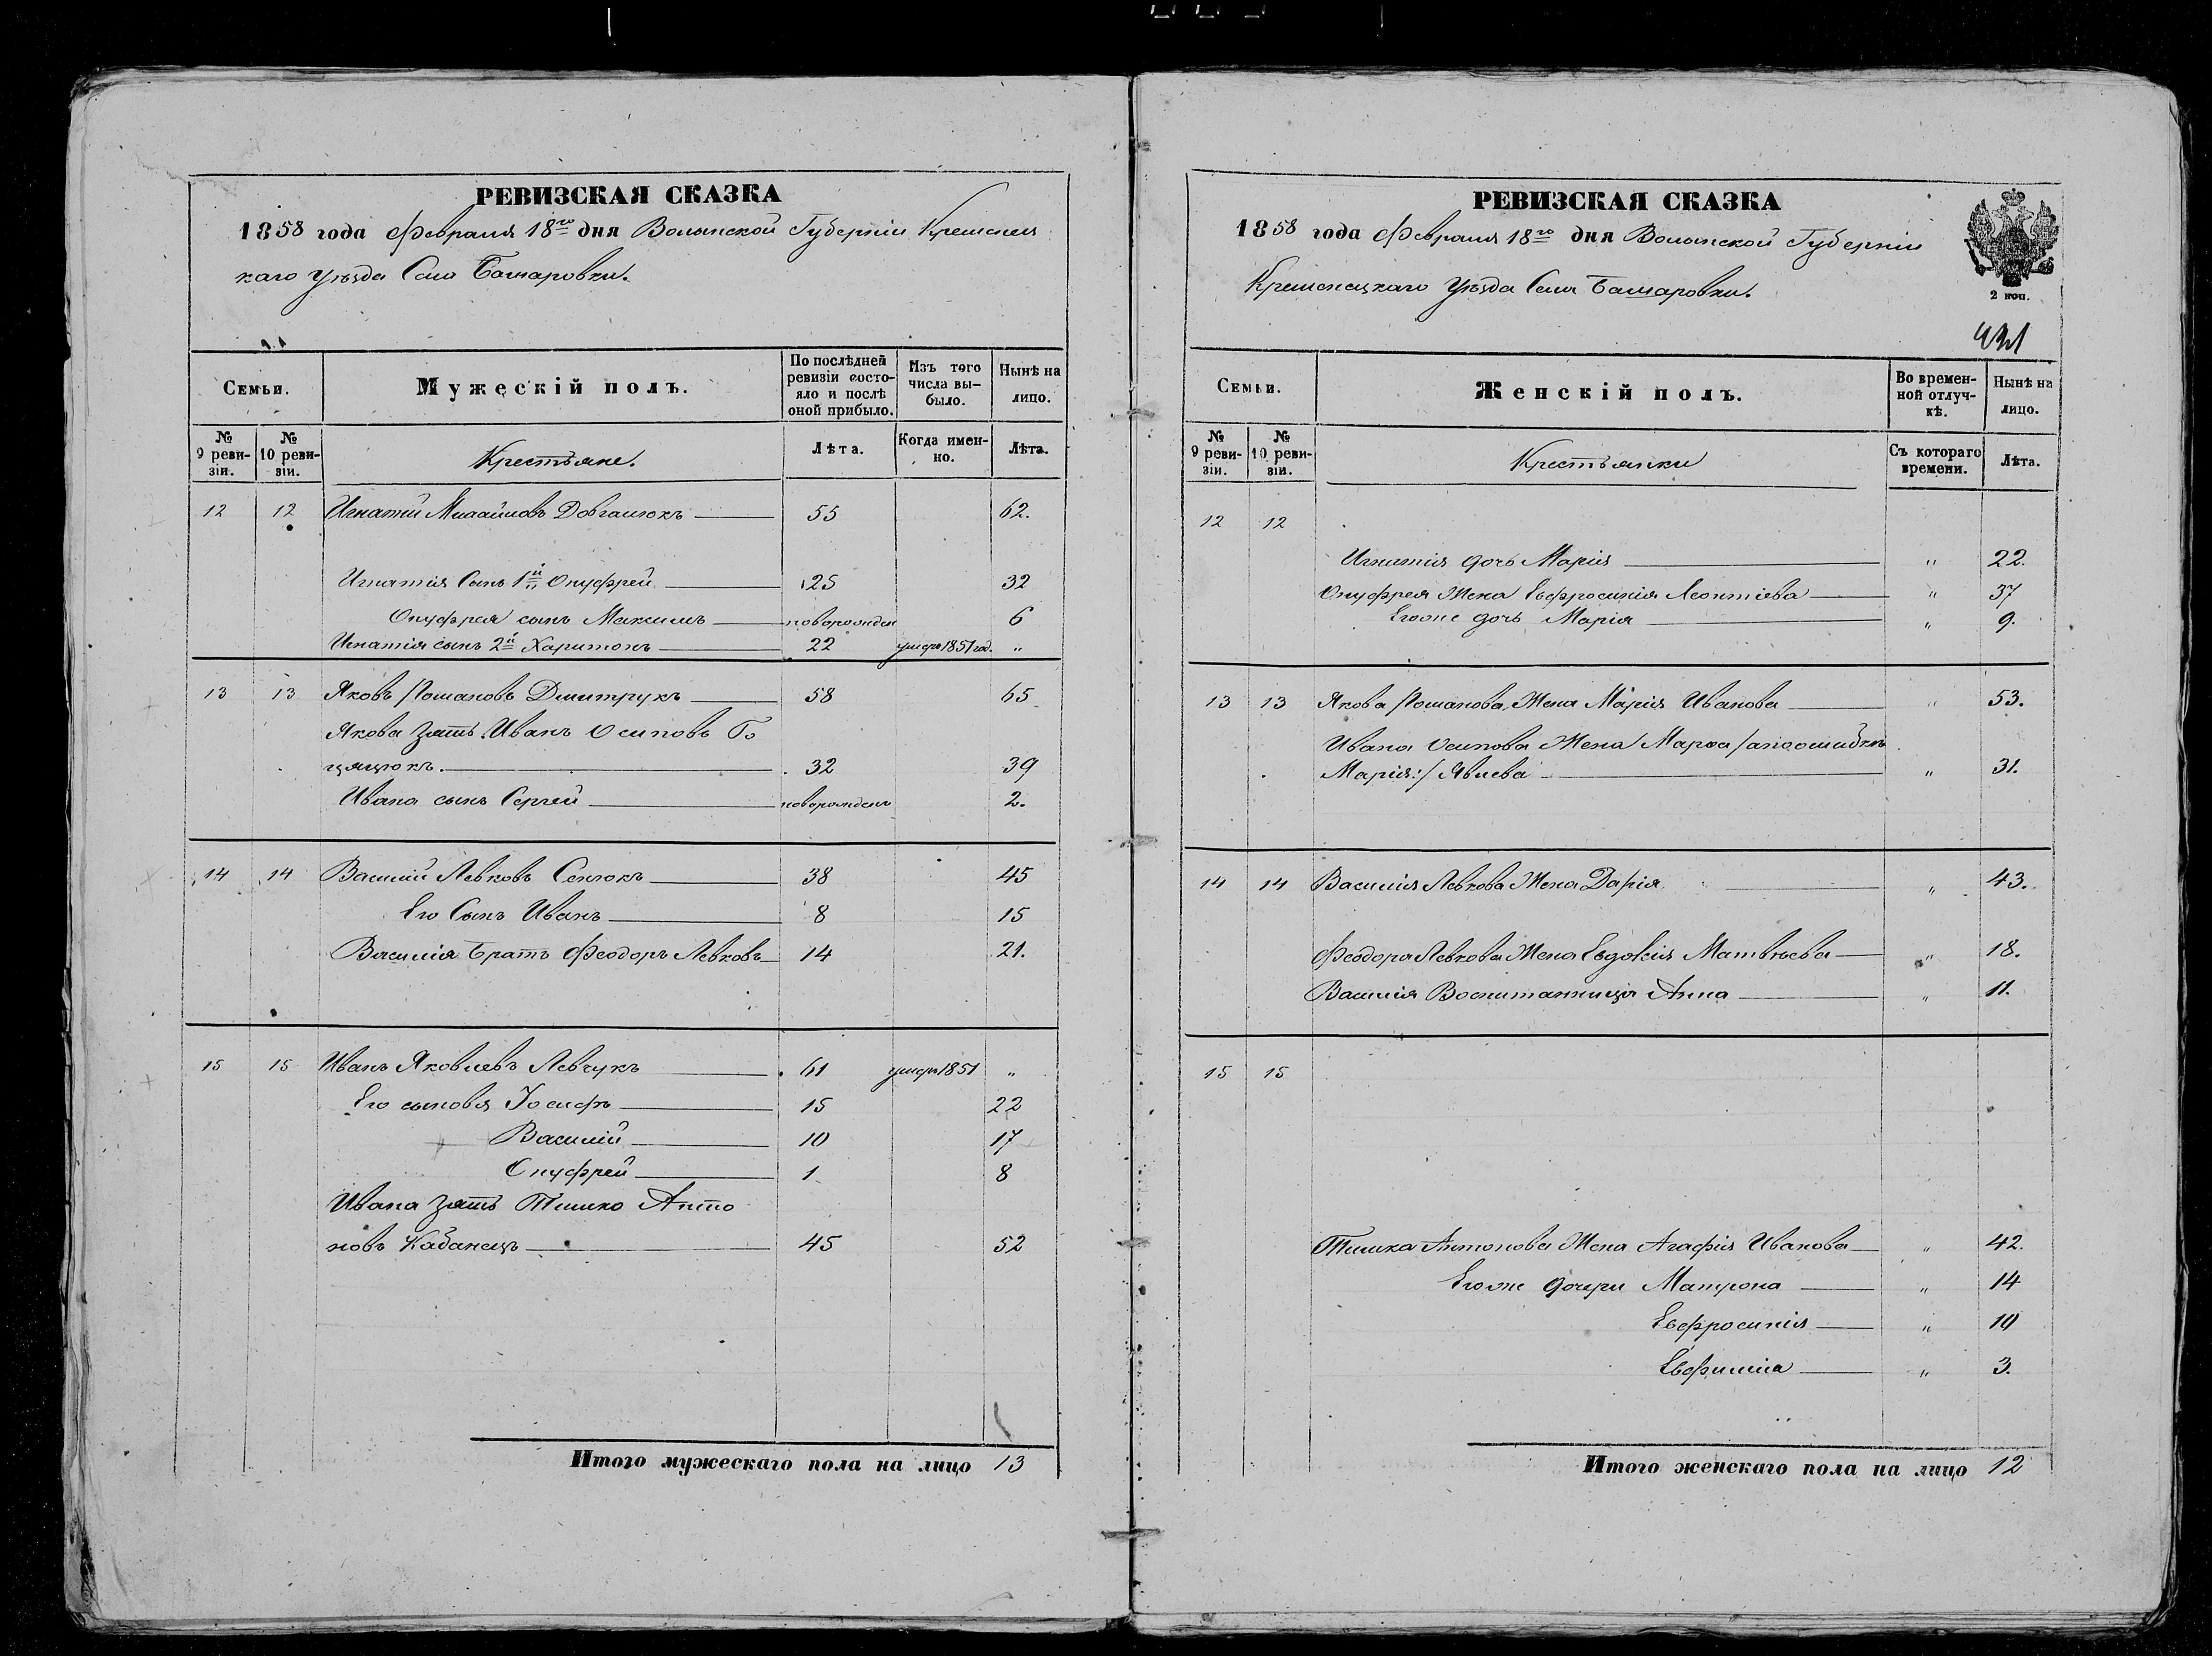 РЕВИЗСКАЯ СКАЗКА
1858 года Февраля 18го дня Волынской Губерніи Кременец
каго уѣзда Села Башаровки.
Семьи.
Мужескій полъ.
По послѣдней ревизіи состояло и послѣ оной прибыло.
Изъ того числа выбыло.
Нынѣ на лицо.
№ 9 ревизіи.
№ 10 ревизіи.
Крестьяне.
Лѣта.
Когда именно.
Лѣта.
12 12 Игнатій Михайловъ Довганюкъ 55 62.
Игнатія Сынъ 1й Онуфрей 25 32
Онуфрея сынъ Максимъ новорожден 6
Игнатія сынъ 2й Харитонъ 22 умеръ 1851 год. "
13 13 Яковъ Романовъ Дмитрукъ 58 65
Якова зять Иванъ Осиповъ Го
цяцюкъ. 32 39
Ивана сынъ Сергей новорожденъ 2.
14 14 Василій Левковъ Сенюкъ 38 45
Его Сынъ Иванъ 8 15
Василія братъ Феодоръ Левковъ 14 21.
15 15 Иванъ Яковлевъ Левчукъ 61 умеръ 1851 "
Его сыновья Іосифъ 15 22
Василій 10 17
Онуфрей 1 8
Ивана зять Тишко Анто
новъ Кабанецъ 45 52
Итого мужескаго пола на лицо 13
РЕВИЗСКАЯ СКАЗКА
1858 года Февраля 18го дня Волынской Губерніи
Кременецкаго уѣзда Села Башаровки.
2 коп.
Семьи.
Женскій полъ.
Во временной отлучкѣ.
Нынѣ на лицо.
№ 9 ревизіи.
№ 10 ревизіи.
Крестьянки
Съ котораго времени.
Лѣта.
12 12
Игнатія дочь Марія " 22.
Онуфрея Жена Евфросинія Леонтіева " 37
Егоже дочь Марія " 9.
13 13 Якова Романова Жена Марія Иванова " 53.
Ивана Осипова Жена Марѳа /апоошибкѣ
Марія:/ Явлева " 31.
14 14 Василія Левкова Жена Дарія " 43.
Феодора Левкова Жена Евдокія Матвѣева " 18.
Василія Воспитанница Анна " 11.
15 15
Тишка Антонова Жена Агафія Иванова " 42.
Егоже дочери Матрона " 14
Евфросинія " 10
Евфимія " 3.
Итого женскаго пола на лицо 12